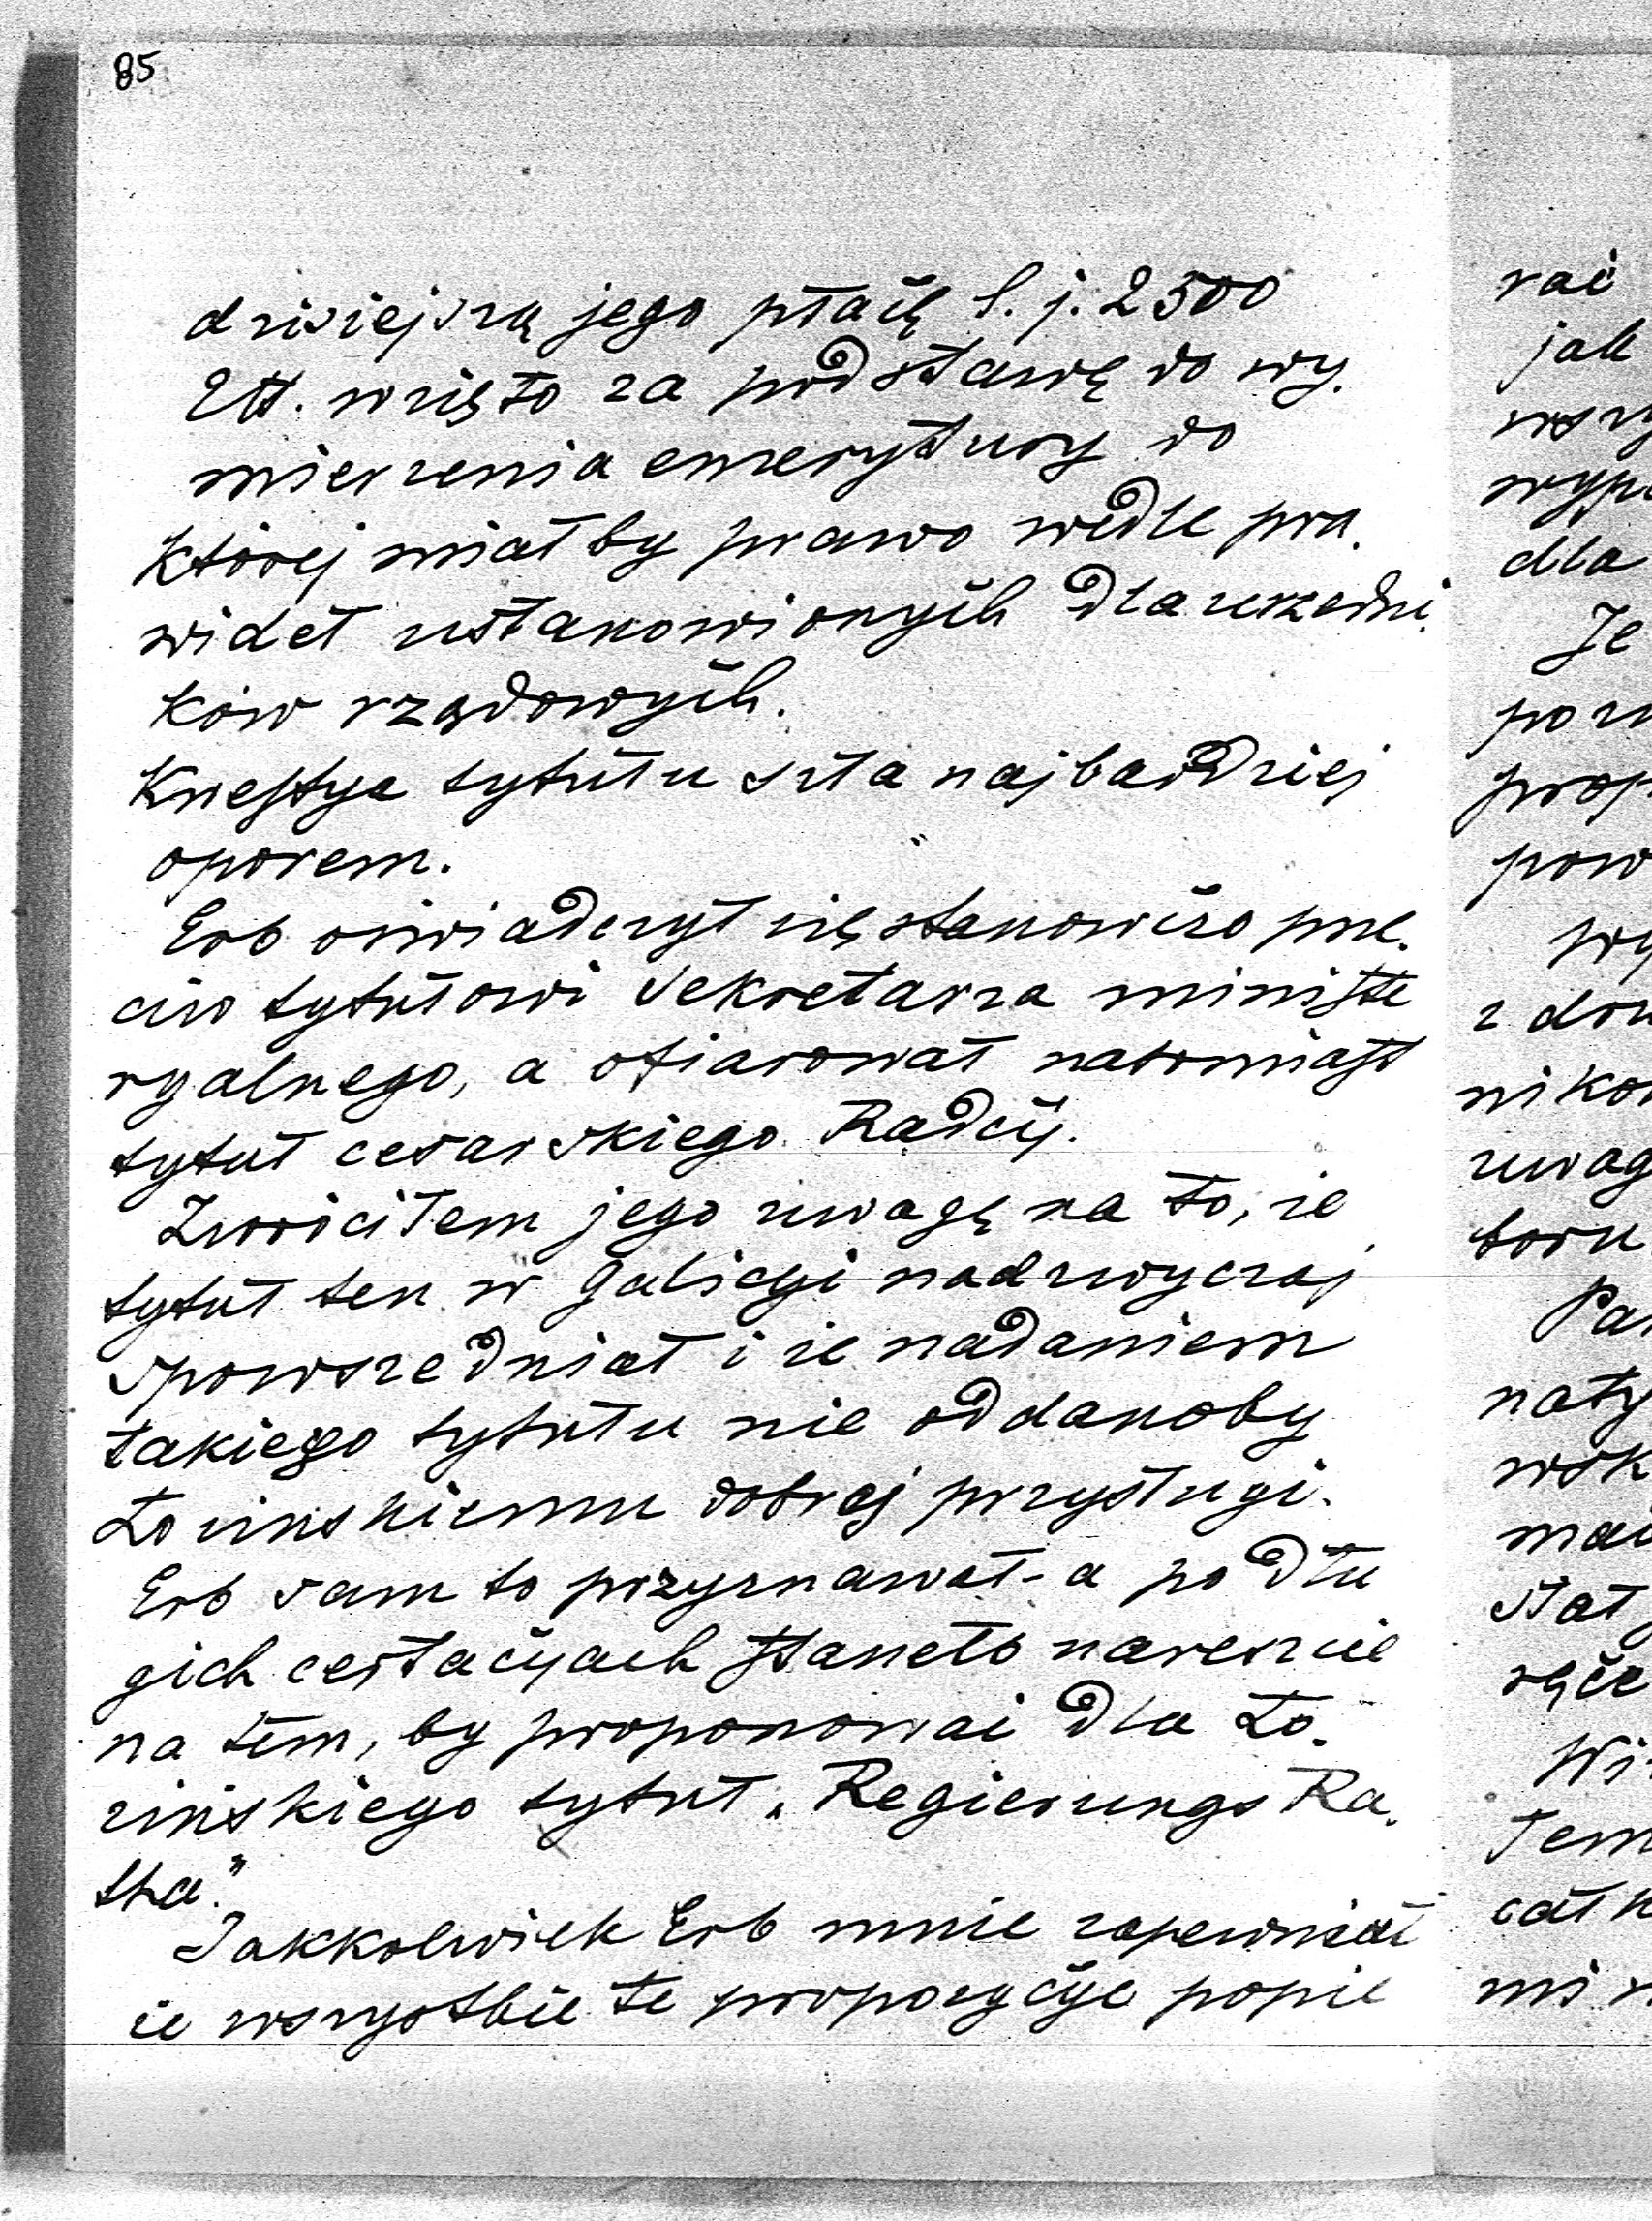 85
dzisiejszą jego płacę t. j. 2500
zł. wzięto za podstawę do wy-
mierzenia emerytury do
której miałby prawo wedle pra-
wideł ustanowionych dla urzędni-
ków rządowych.
Kwestya tytułu szła najbardziej
oporem.
Erb oświadczył się stanowczo prze-
ciw tytułowi Sekretarza ministe
ryalnego, a ofiarował natomiast
tytuł cesarskiego Radcy.
Zwróciłem jego uwagę na to, że
tytuł ten w Galicyi nadzwyczaj
spowszedniał i że nadaniem
takiego tytułu nie oddanoby
Łozińskiemu dobrej przysługi.
Erb sam to przyznawał - a po dłu
gich certacyach stanęło nareszcie
na tem, by proponować dla Ło-
zińskiego tytuł „Regierungs Ra-
tha."
Jakkolwiek Erb mnie zapewniał
że wszystkie te propozycye popie
rać
jak
dla
Je
prop
pow
wy
z dru
uwag
boru
naty
ręce
Wi
łem